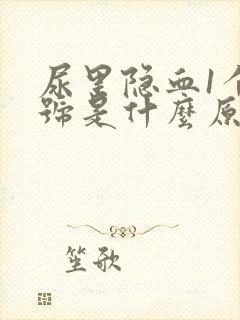 尿里隐血1个
號是什麼原
笙歌